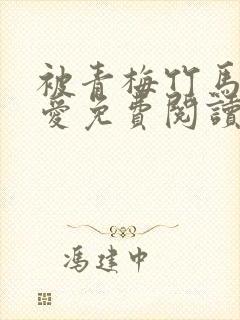 被青梅竹马
爱免費閱讀
馮建中